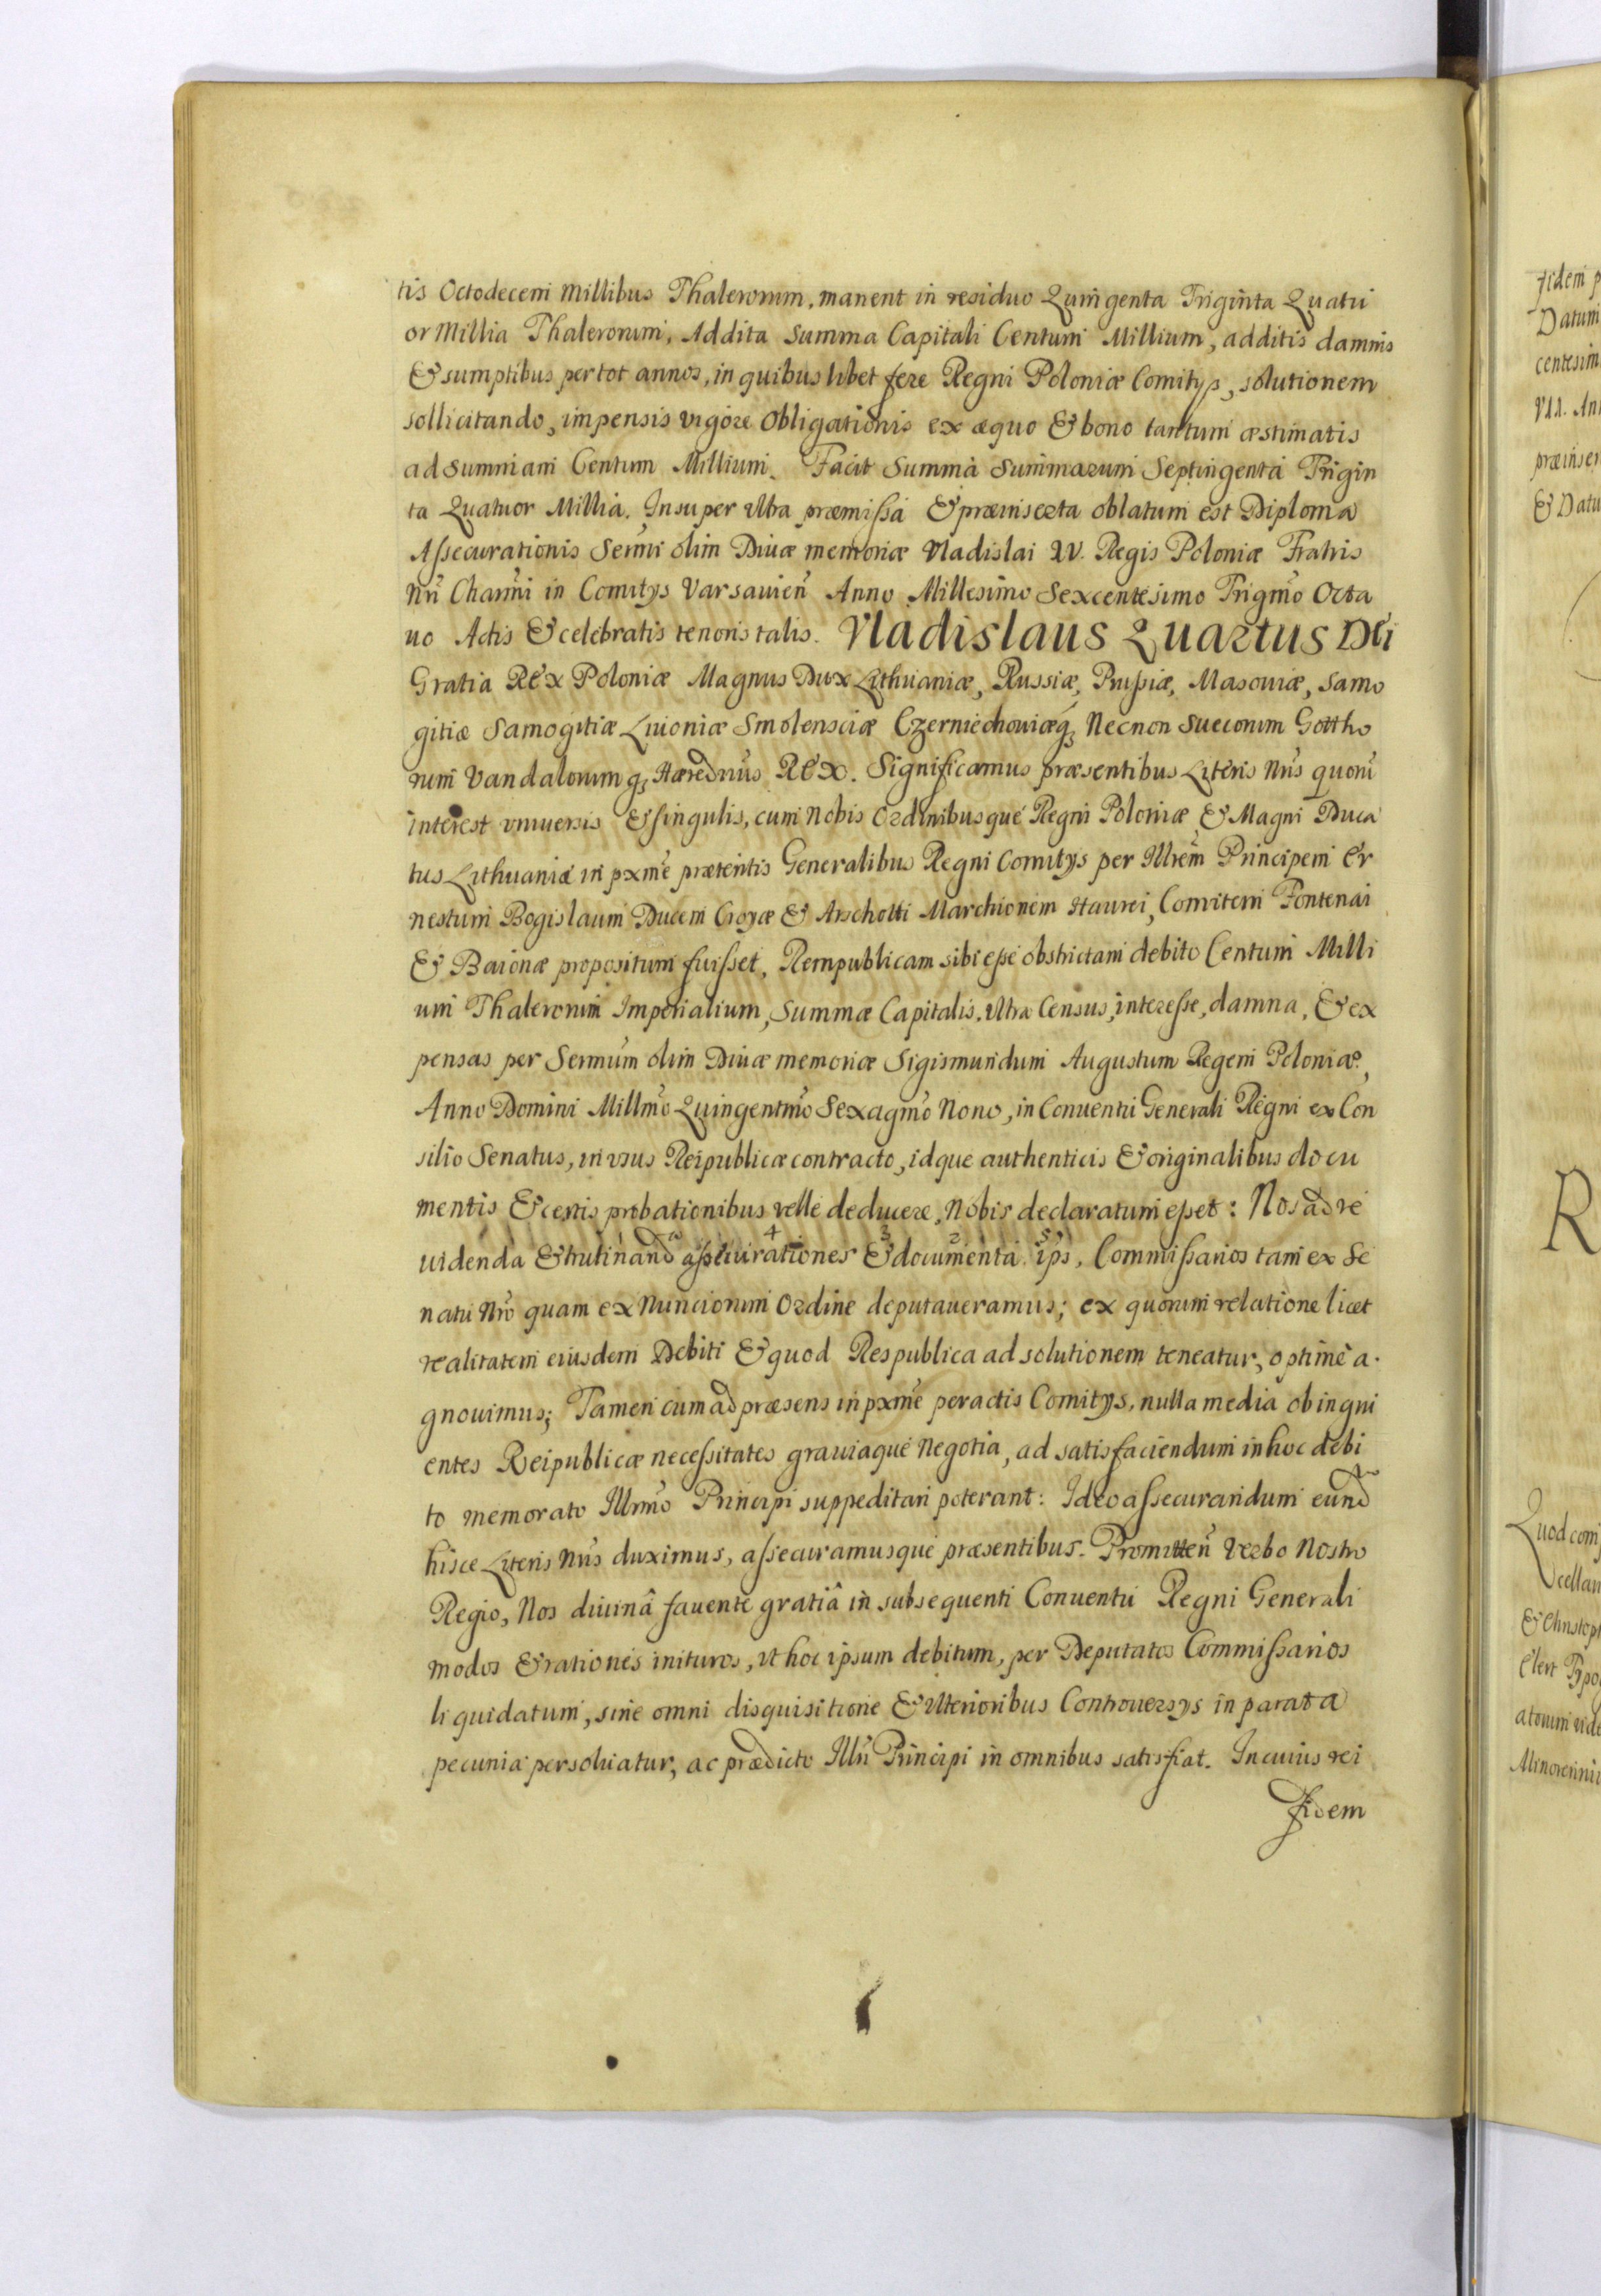 tis Octodecem Millibus Thalerorum, manent in residuo Quingenta Triginta Quatu
or Millia Thalerorum, Addita Summa Capitali Centum Millium, additis damnis
& sumptibus per tot annos, in quibus libet fere Regni Poloniæ Comitys, solutionem
sollicitando, impensis vigore Obligationis ex æquo & bono tantum æstimatis
ad summam Centum Millium. Facit Summa Summarum Septingenta Trigin
ta Quatuor Millia. Insuper ultra præmissa & præinserta oblatum est Diploma
Assecurationis Sermi olim Diuæ memoriæ Vladislai IV. Regis Poloniæ Fratris
Nri Charmi in Comitys Varsauien Anno Millesimo Sexcentesimo Trigmo Octa
uo Actis & celebratis tenoris talis. Vladislaus Quartus Dei
Gratia Rex Poloniæ Magnus Dux Lithuaniæ, Russiæ, Prussiæ, Masouiæ, Samo
gitiæ Samogitiæ Liuoniæ Smolensciæ Czerniechouiæq; Necnon Suecorum Gottho
rum Vandalorumq; Hæreduus Rex. Significamus præsentibus Literis Nris quorum
interest vniuersis & singulis, cum nobis Ordinibusque Regni Poloniæ & Magni Duca
tus Lithuaniæ in pxme præteritis Generalibus Regni Comitys per Illrem Principem Er
nestum Bogislaum Ducem Croyæ & Arschotti Marchionem Haurei, Comitem Fontenai
& Baionæ propositum fuisset, Rempublicam sibi esse obstrictam debito Centum Milli
um Thalerorum Imperialium, Summæ Capitalis, Ultra Census, interesse, damna, & ex
pensas per Sermum olim Diuæ memoriæ Sigismundum Augustum Regem Poloniæ,
Anno Domini Millmo Quingentmo Sexagmo Nono, in Conuentu Generali Regni ex Con
silio Senatus, in vsus Reipublicæ contracto, idque authenticis & originalibus docu
mentis & certis probationibus velle deducere, Nobis declaratum esset: Nos ad re
uidenda & trutinand assecurationes & documenta ips, Commissarios tam ex Se
natu Nro quam ex Nunciorum Ordine deputaueramus; ex quorum relatione licet
realitatem eiusdem Debiti & quod Respublica ad solutionem teneatur, optime a
gnouimus; Tamen cum ad præsens in pxme peractis Comitys, nulla media ob ingru
entes Reipublicæ necessitates grauiaque Negotia, ad satisfaciendum in hoc debi
to memorato Illmo Principi suppeditari poterant: Ideo assecurandum eund
hisce Literis Nris duximus, assecuramusque præsentibus. Promitten Verbo Nostro
Regio, Nos diuinâ fauente gratiâ in subsequenti Conuentu Regni Generali
modos & rationes inituros, vt hoc ipsum debitum, per Deputatos Commissarios
liquidatum, sine omni disquisitione & Ulterioribus Controuersys in parata
pecunia persoluatur, ac prædicto Illri Principi in omnibus satisfiat. In cuius rei
fidem